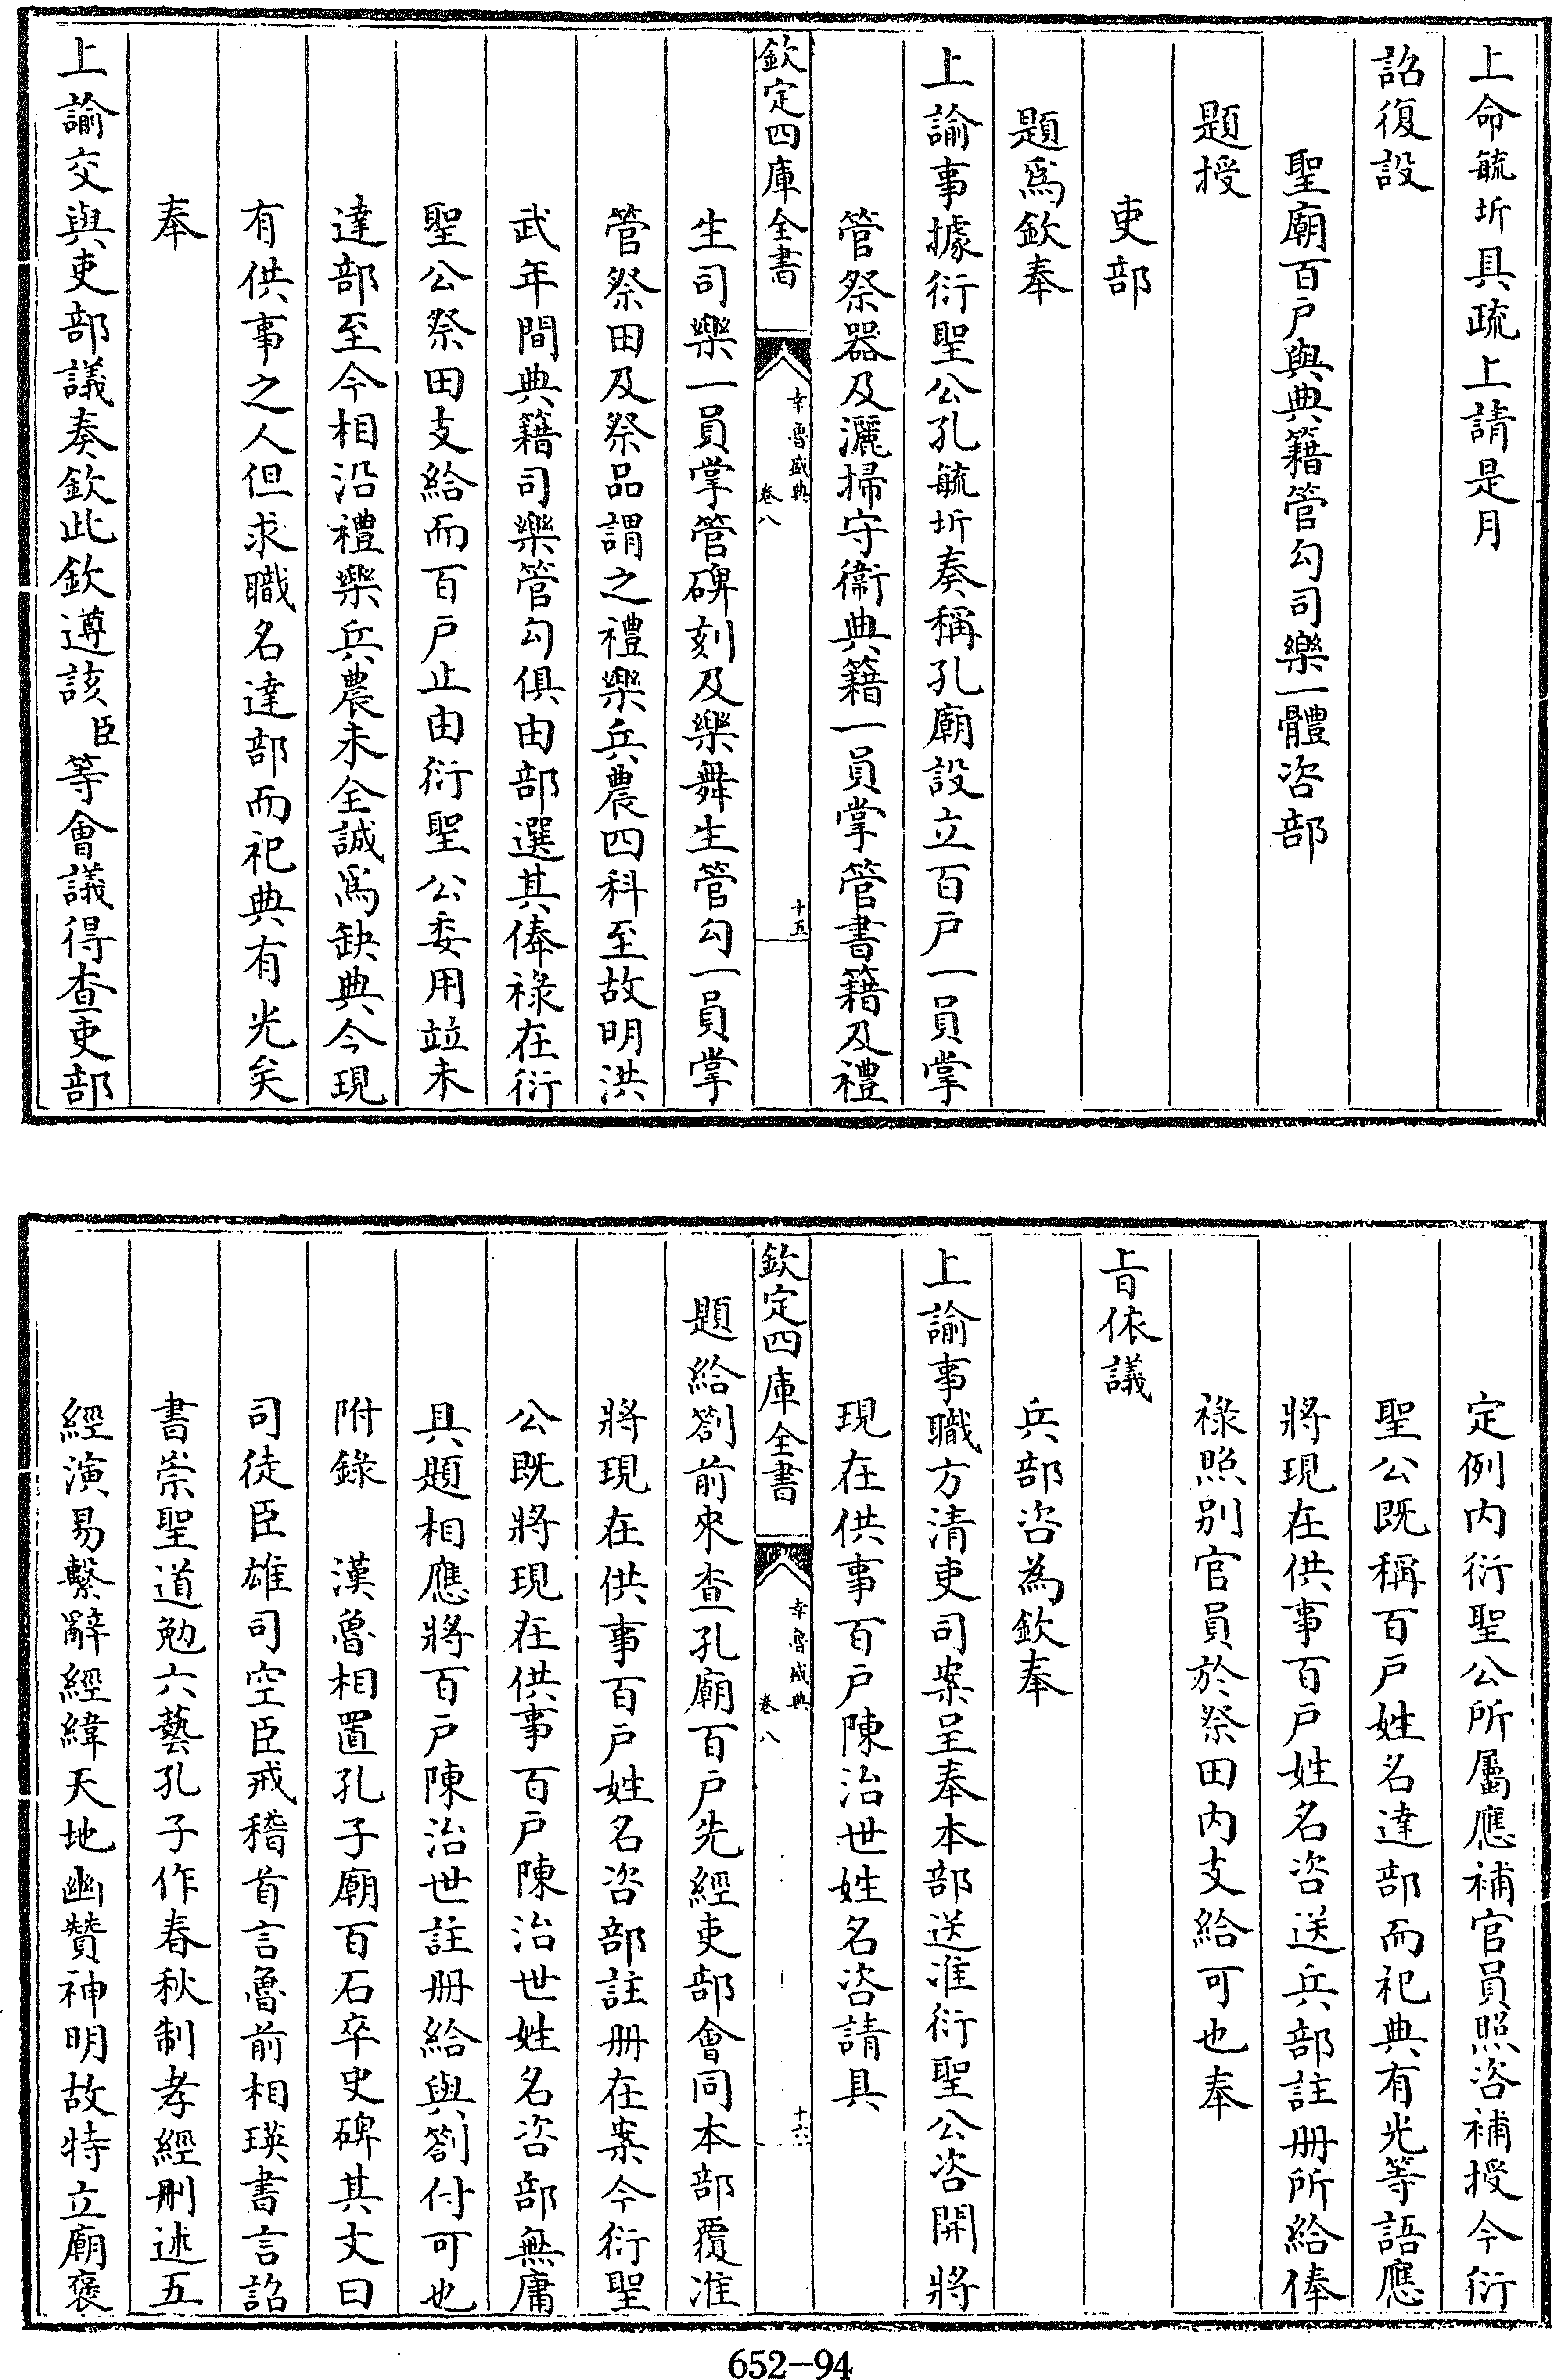 上命毓圻具疏上請是月
詔復設
聖廟百戶與典籍管勾司樂一體咨部
題授
吏部
題爲欽奉
上諭事據衍聖公孔毓圻奏稱孔廟設立百戶一員掌
管祭器及灑掃守衞典籍一員掌管書籍及禮
欽定四庫全書
幸魯盛典
卷八
十五
生司樂一員掌管碑刻及樂舞生管勾一員掌
管祭田及祭品謂之禮樂兵農四科至故明洪
武年間典籍司樂管勾俱由部選其俸祿在衍
聖公祭田支給而百戶止由衍聖公委用竝未
達部至今相沿禮樂兵農未全誠爲缺典今現
有供事之人但求職名達部而祀典有光矣
奉
上諭交與吏部議奏欽此欽遵該臣等會議得查吏部
定例内衍聖公所屬應補官員照咨補授今衍
聖公既稱百戶姓名達部而祀典有光等語應
將現在供事百戶姓名咨送兵部註冊所給俸
祿照别官員於祭田内支給可也奉
旨依議
兵部咨為欽奉
上諭事職方清吏司案呈奉本部送准衍聖公咨開將
現在供事百戶陳治世姓名咨請具
欽定四庫全書
幸魯盛典
卷八
十六
題給劄前來查孔廟百戶先經吏部會同本部覆准
將現在供事百戶姓名咨部註冊在案今衍聖
公既將現在供事百戶陳治世姓名咨部無庸
具題相應將百戶陳治世註冊給與劄付可也
附錄　漢魯相置孔子廟百石卒史碑其文曰
司徒臣雄司空臣戒稽首言魯前相瑛書言詔
書崇聖道勉六藝孔子作春秋制孝經刪述五
經演易繫辭經緯天地幽贊神明故特立廟褒
652-94